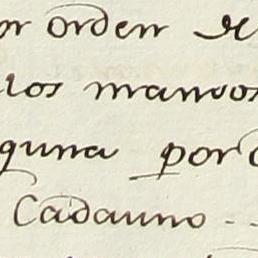 or orden de
los mandos
guna por
Cadauno